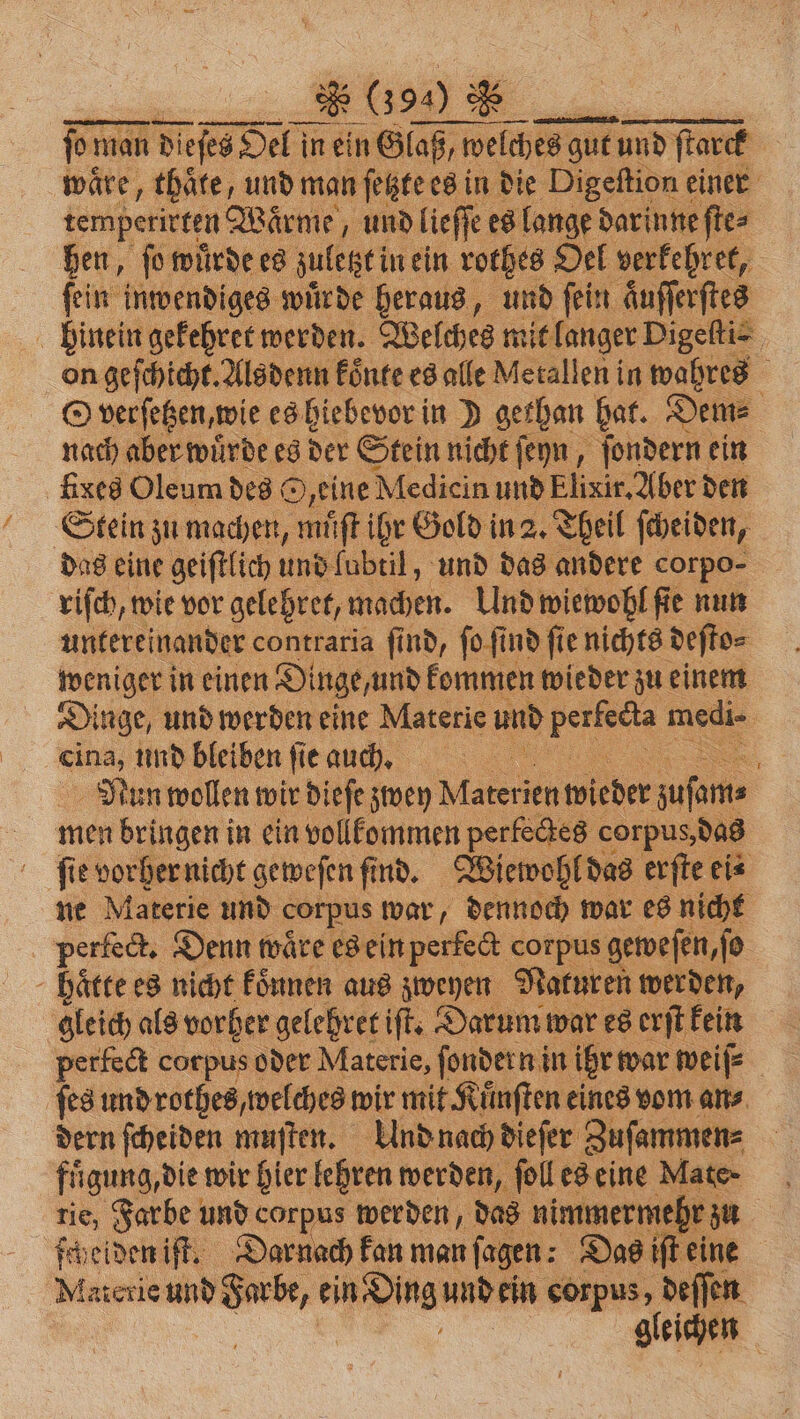 ❧ (394) ❧
ſo man dieſes Oel in ein Glaß, welches gut und ſtarck
waͤre, thaͤte, und man ſetzte es in die Digeſtion einer
temperirten Waͤrme, und lieſſe es lange darinne ſte⸗
hen, ſo wuͤrde es zuletzt in ein rothes Oel verkehret,
ſein inwendiges wuͤrde heraus, und ſein aͤuſſerſtes
hinein gekehret werden. Welches mit langer Digeſti⸗
on geſchicht. Alsdenn koͤnte es alle Metallen in wahres
☉ verſetzen, wie es hiebevor in ☽ gethan hat. Dem⸗
nach aber wuͤrde es der Stein nicht ſeyn, ſondern ein
fixes Oleum des ☉, eine Medicin und Elixir. Aber den
Stein zu machen, muͤſt ihr Gold in 2. Theil ſcheiden,
das eine geiſtlich und ſubtil, und das andere corpo-
riſch, wie vor gelehret, machen. Und wiewohl ſie nun
untereinander contraria ſind, ſo ſind ſie nichts deſto⸗
weniger in einen Dinge, und kommen wieder zu einem
Dinge, und werden eine Materie und perfecta medi-
cina, und bleiben ſie auch.
Nun wollen wir dieſe zwey Materien wieder zuſam⸗
men bringen in ein vollkommen perfectes corpus, das
ſie vorher nicht geweſen ſind. Wiewohl das erſte ei⸗
ne Materie und corpus war, dennoch war es nicht
perfect. Denn waͤre es ein perfect corpus geweſen, ſo
haͤtte es nicht koͤnnen aus zweyen Naturen werden,
gleich als vorher gelehret iſt. Darum war es erſt kein
perfect corpus oder Materie, ſondern in ihr war weiſ⸗
ſes und rothes, welches wir mit Kuͤnſten eines vom an⸗
dern ſcheiden muſten. Und nach dieſer Zuſammen⸗
fuͤgung, die wir hier lehren werden, ſoll es eine Mate-
rie, Farbe und corpus werden, das nimmermehr zu
ſcheiden iſt. Darnach kan man ſagen: Das iſt eine
Materie und Farbe, ein Ding und ein corpus, deſſen
gleichen